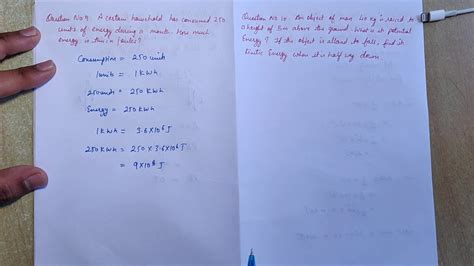 Question No 9. A certain household has consumed 250
units of energy during a month. How much
energy is this in joules?
Consumption = 250 units
1 units = 1 kWh
250 units = 250 kWh
Energy = 250 kWh
1 kWh = 3.6 x 10⁶ J
250 kWh = 250 x 3.6 x 10⁶ J
= 9 x 10⁸ J
Question No 10. An object of mass 40 kg is raised to
height of 5m above the ground. What is its potential
Energy? If the object is allowed to fall, find its
kinetic Energy when it is half way down.